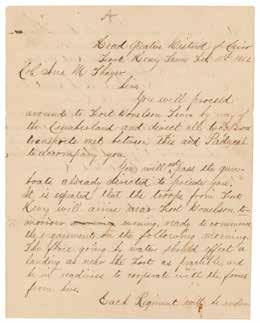 A
Head Quarters District of Cairo
Fort Henry Tenn Feb 11th 1862
Col. Jno. M. Thayer
Sir:
You will proceed
around to Fort Donelson Tenn by way of
the Cumberland and direct all troop
transports met between this and Paducah
to accompany you.
You will not pass the gun-
boats already directed to precede you.
It is expected that the troops from Fort
Henry will arrive near Fort Donelson to-
morrow evening, ready to commence
the engagement on the following morning.
The force going by water should effect a
landing as near the Fort as practicable and
be in readiness to cooperate with the forces
from here.
Each Regiment will be